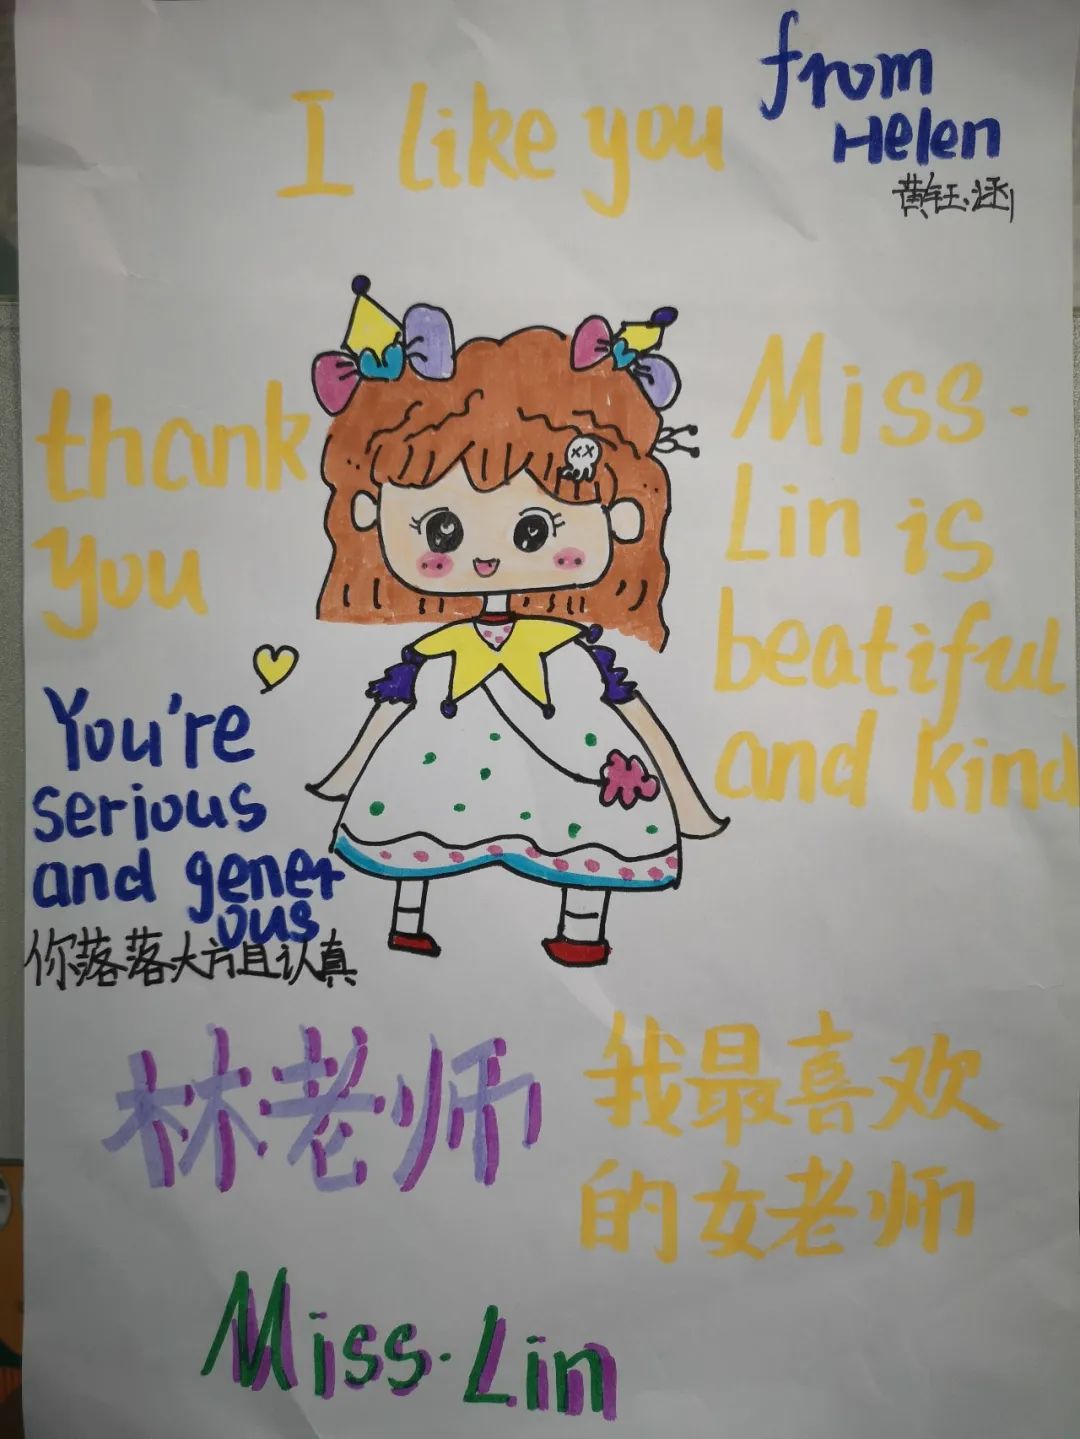 I like you
from
Helen
黄钰涵
thank
you
Miss.
Lin is
beatiful
and kind
You're
serious
and gener
ous
你落落大方且认真
林老师
我最喜欢
的女老师
Miss.Lin